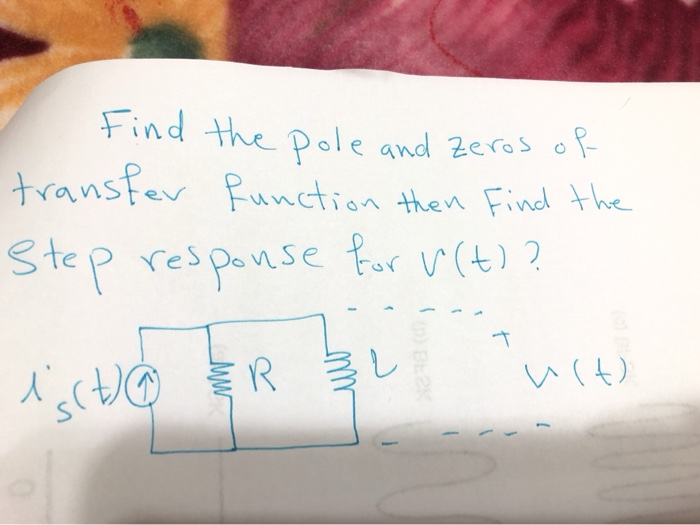 Find the pole and zeros of
transfer function then Find the
Step response for v(t)?
is(t) R L + v(t)